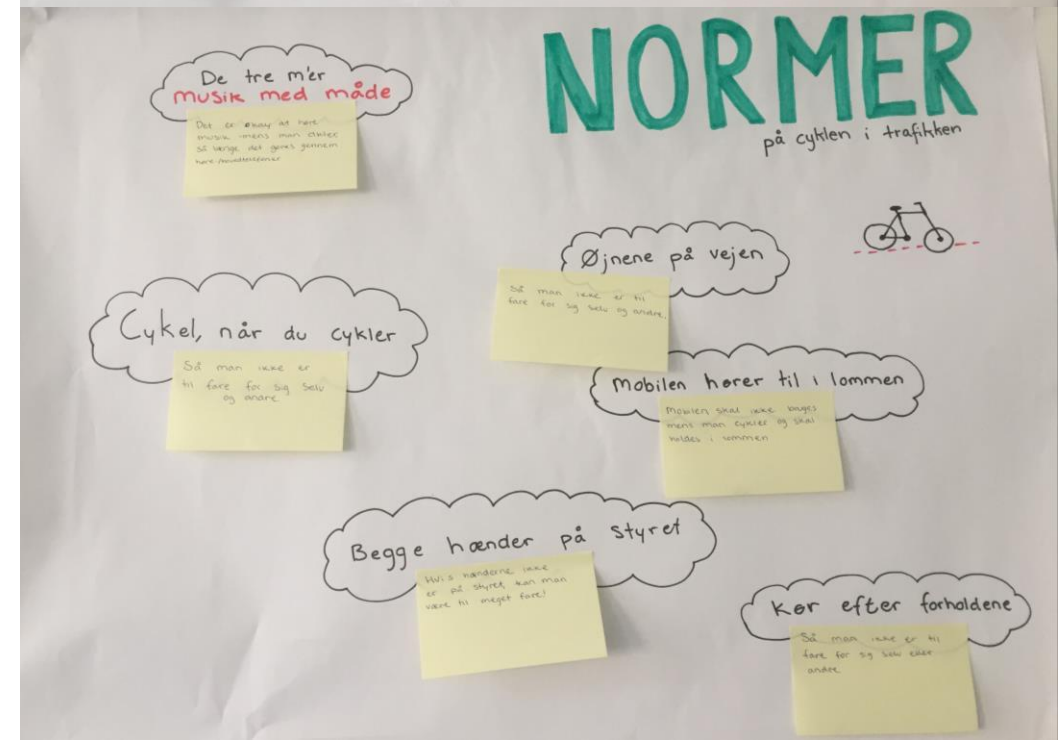 NORMER
på cyklen i trafikken
De tre m'er
musik med måde
Det er okay at høre
musik imens man cykler
så længe det gøres gennem
Øjnene på vejen
Så man ikke er til
fare for sig selv og andre.
Cykel, når du cykler
Så man ikke er
til fare for sig selv
og andre
mobilen hører til i lommen
Mobilen skal ikke bruges
mens man cykler og skal
holdes i lommen
Begge hænder på styret
Hvis hænderne ikke
er på styret, kan man
være til meget fare!
Kør efter forholdene
Så man ikke er til
fare for sig selv eller
andre